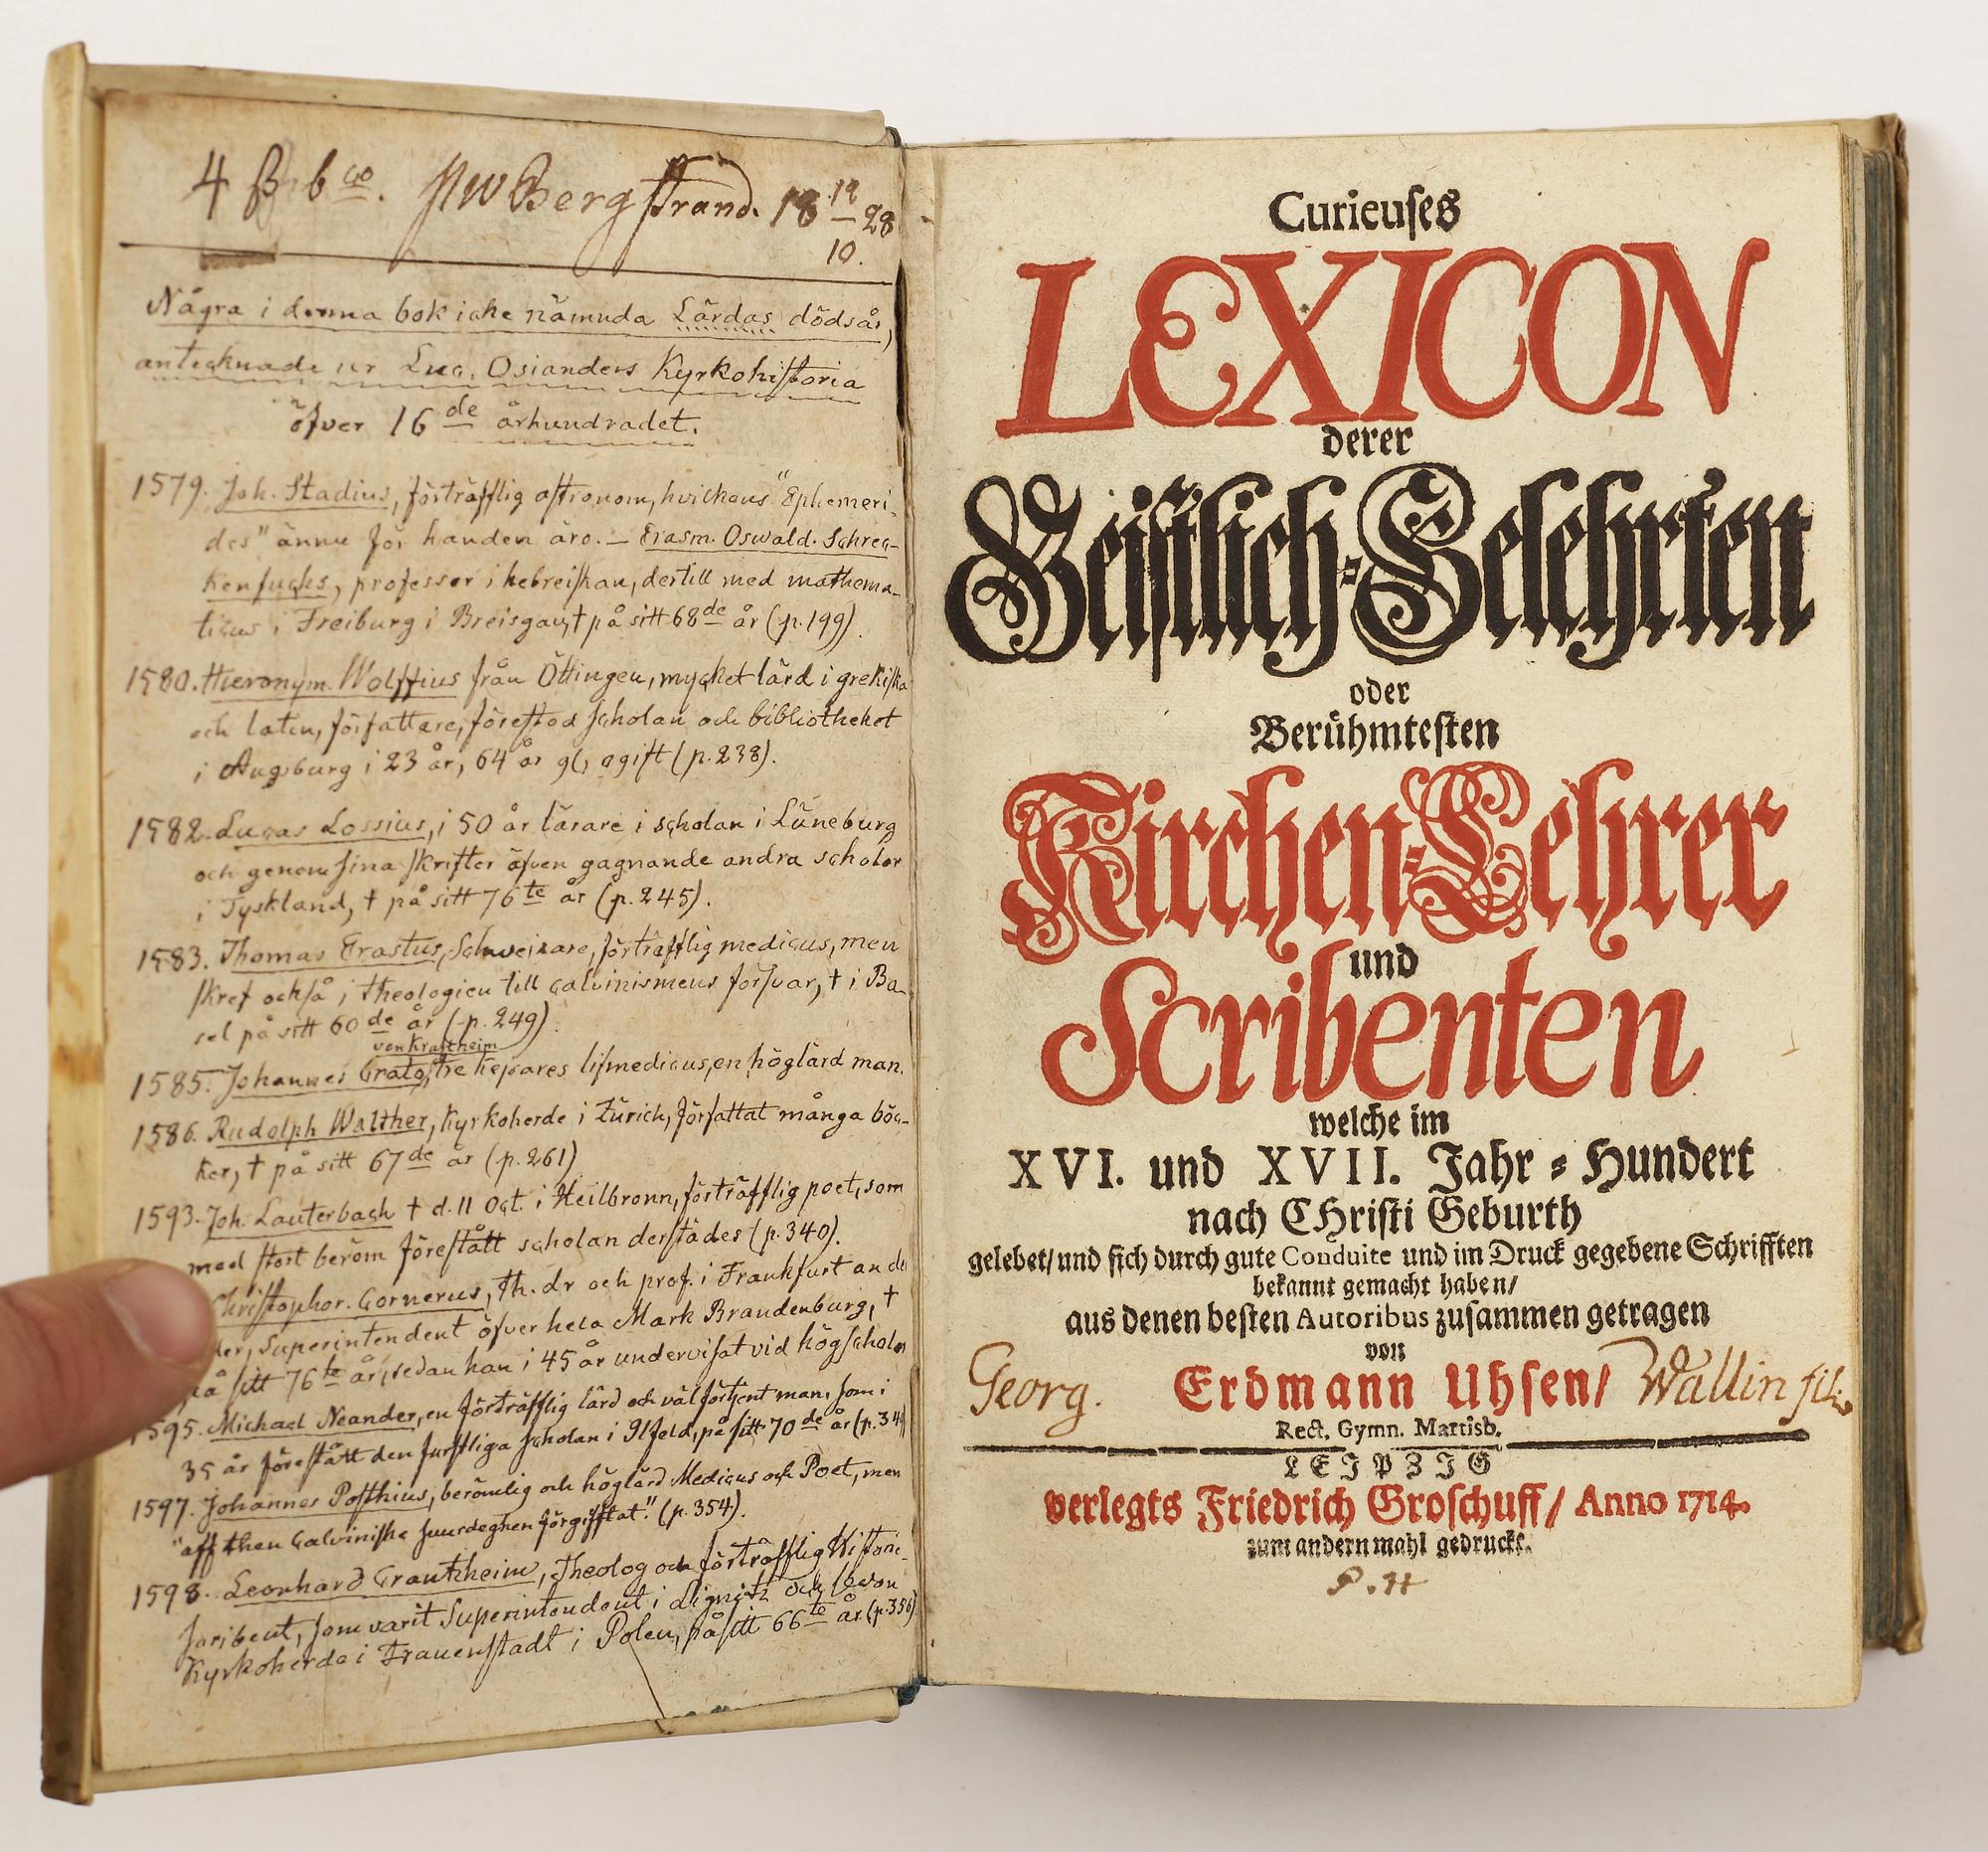 4 ß b co. JW Bergstrand. 18 19/10 28
Några i denna bok icke nämnda Lärdas dödsår,
antecknade ur Luc. Osianders Kyrkohistoria
öfver 16de århundradet.
1579. Joh. Stadius, förträfflig astronom, hvilkens "Ephemeri-
des" ännu för handen äro. — Erasm. Oswald. Schrec-
kenfuchs, professor i hebreiskan, dertill med mathema-
ticus i Freiburg i Breisgau, † på sitt 68de år (p. 199).
1580. Hieronym. Wolffius från Öttingen, mycket lärd i grekiska
och latin, författare, förestod scholan och bibliotheket
i Augsburg i 23 år, 64 år gl, ogift (p. 238).
1582. Lucas Lossius, i 50 år lärare i scholan i Lüneburg
och genom sina skrifter äfven gagnande andra scholor
i Tyskland, † på sitt 76te år (p. 245).
1583. Thomas Erastus, Schweizare, förträfflig medicus, men
skref också i theologien till calvinismens försvar, † i Ba-
sel på sitt 60de år (p. 249).
von Kraftheim
1585. Johannes Crato, tre kejsares lifmedicus, en höglärd man.
1586. Rudolph Walther, Kyrkoherde i Zürich, författat många böc-
ker, † på sitt 67de år (p. 261)
1593. Joh. Lauterbach † d. 11 Oct. i Heilbronn, förträfflig poet, som
med stort beröm förestått scholan derstädes (p. 340).
Christophor. Cornerus, th. dr och prof. i Frankfurt an de
der, Superintendent öfver hela Mark Brandenburg, †
på sitt 76te år, sedan han i 45 år undervisat vid högscholan
1595. Michael Neander, en förträfflig lärd och välförtjent man, som i
35 år förestått den furstliga scholan i Ilfeld, på sitt 70de år (p. 34
1597. Johannes Posthius, berömlig och höglärd Medicus och Poet, men
"aff then Calviniske suurdeghen förgifftat." (p. 354).
1598. Leonhard Crantzheim, Theolog och förträfflig Histori-
scribent, som varit Superintendent i Lignitz och sedan
Kyrkoherde i Frauenstadt i Polen, på sitt 66te år. (p. 356)
Curieuses
LEXICON
derer
Geistlich-Gelehrten
oder
Berühmtesten
Kirchen-Lehrer
und
Scribenten
welche im
XVI. und XVII. Jahr-Hundert
nach CHristi Geburth
gelebet/ und sich durch gute Conduite und im Druck gegebene Schrifften
bekannt gemacht haben/
aus denen besten Autoribus zusammen getragen
von
Georg. Erdmann Uhsen/ Wallin fil:
Rect. Gymn. Martisb.
LEIPZIG
verlegts Friedrich Groschuff/ Anno 1714.
zum andern mahl gedruckt.
P. H